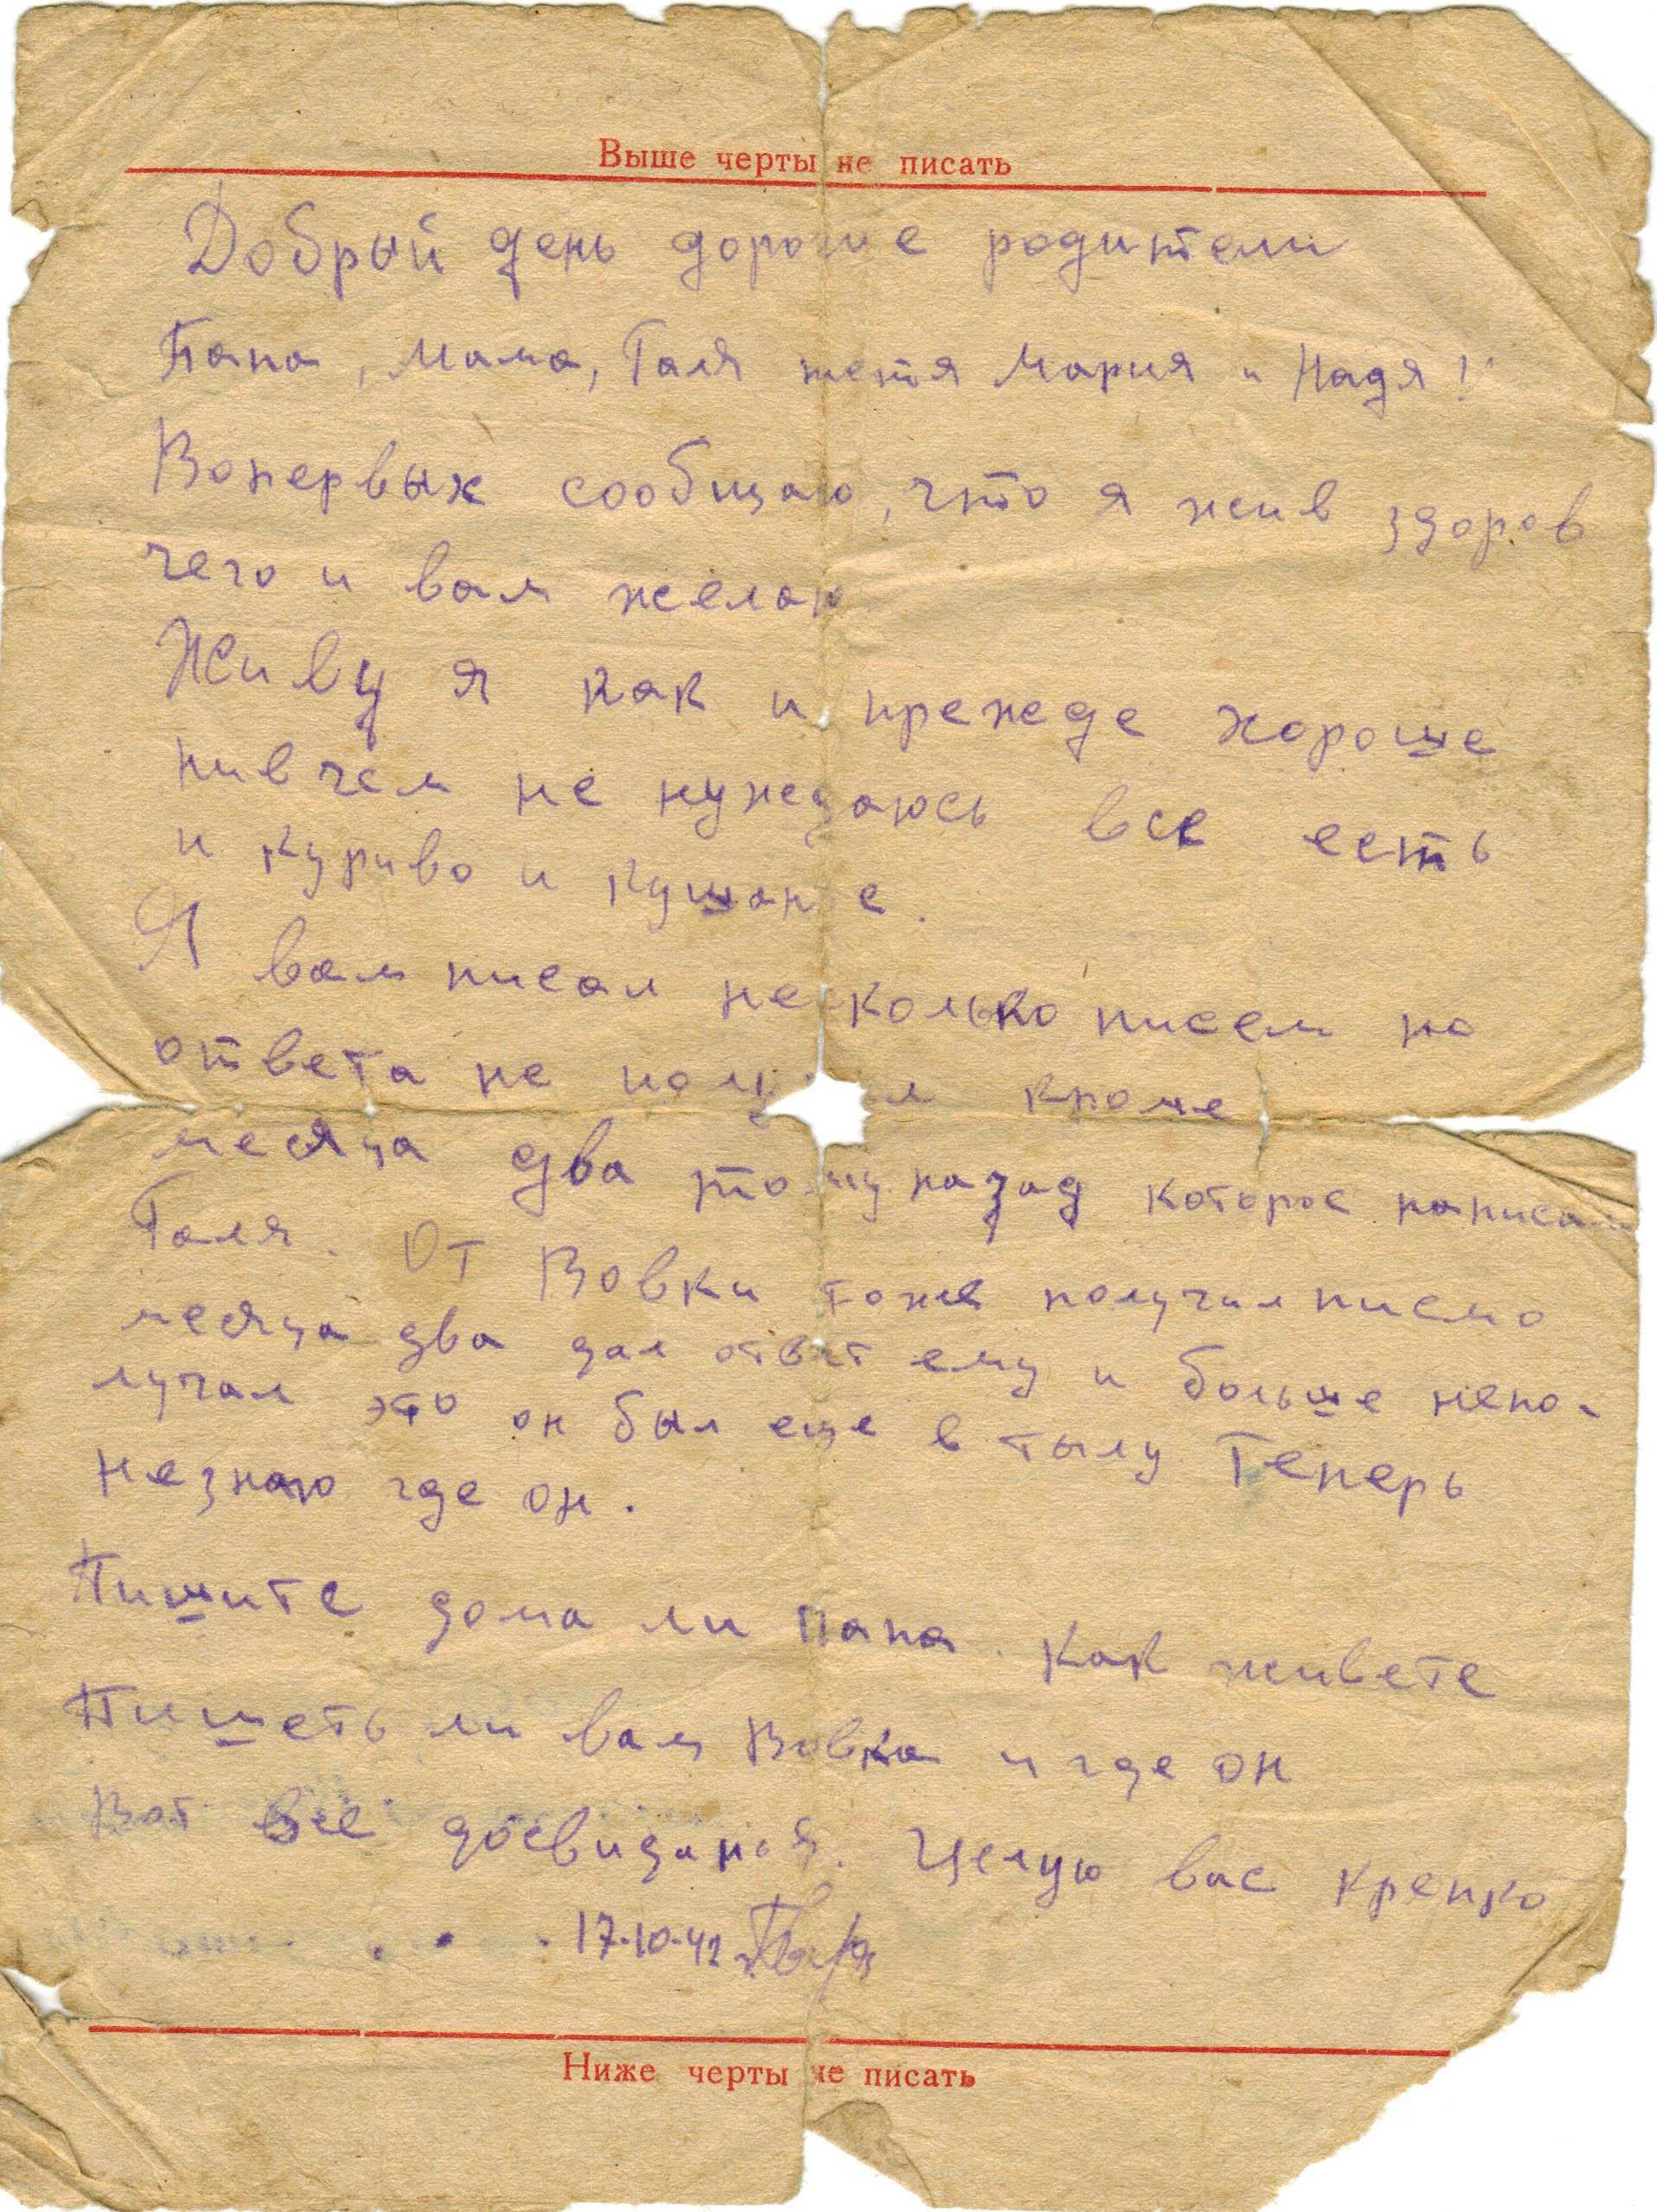 Выше черты не писать
Добрый день дорогие родители
Папа, Мама, Галя тетя Мария и Надя!
Вопервых сообщаю, что я жив здоров
чего и вам желаю
Живу я как и прежде хороше
нивчем не нуждаюсь все есть
и куриво и кушанье.
Я вам писал несколько писем но
ответа не получил кроме
месяца два тому назад которое написала
Галя. От Вовки тоже получил писмо
месяца два дал ответ ему и больше непо-
лучал это он был еще в тылу. Теперь
незнаю где он.
Пишите дома ли папа. Как живете
Пишеть ли вам Вовка и где он
Вот все досвидания. Целую вас крепко
17.10.42
Ниже черты не писать